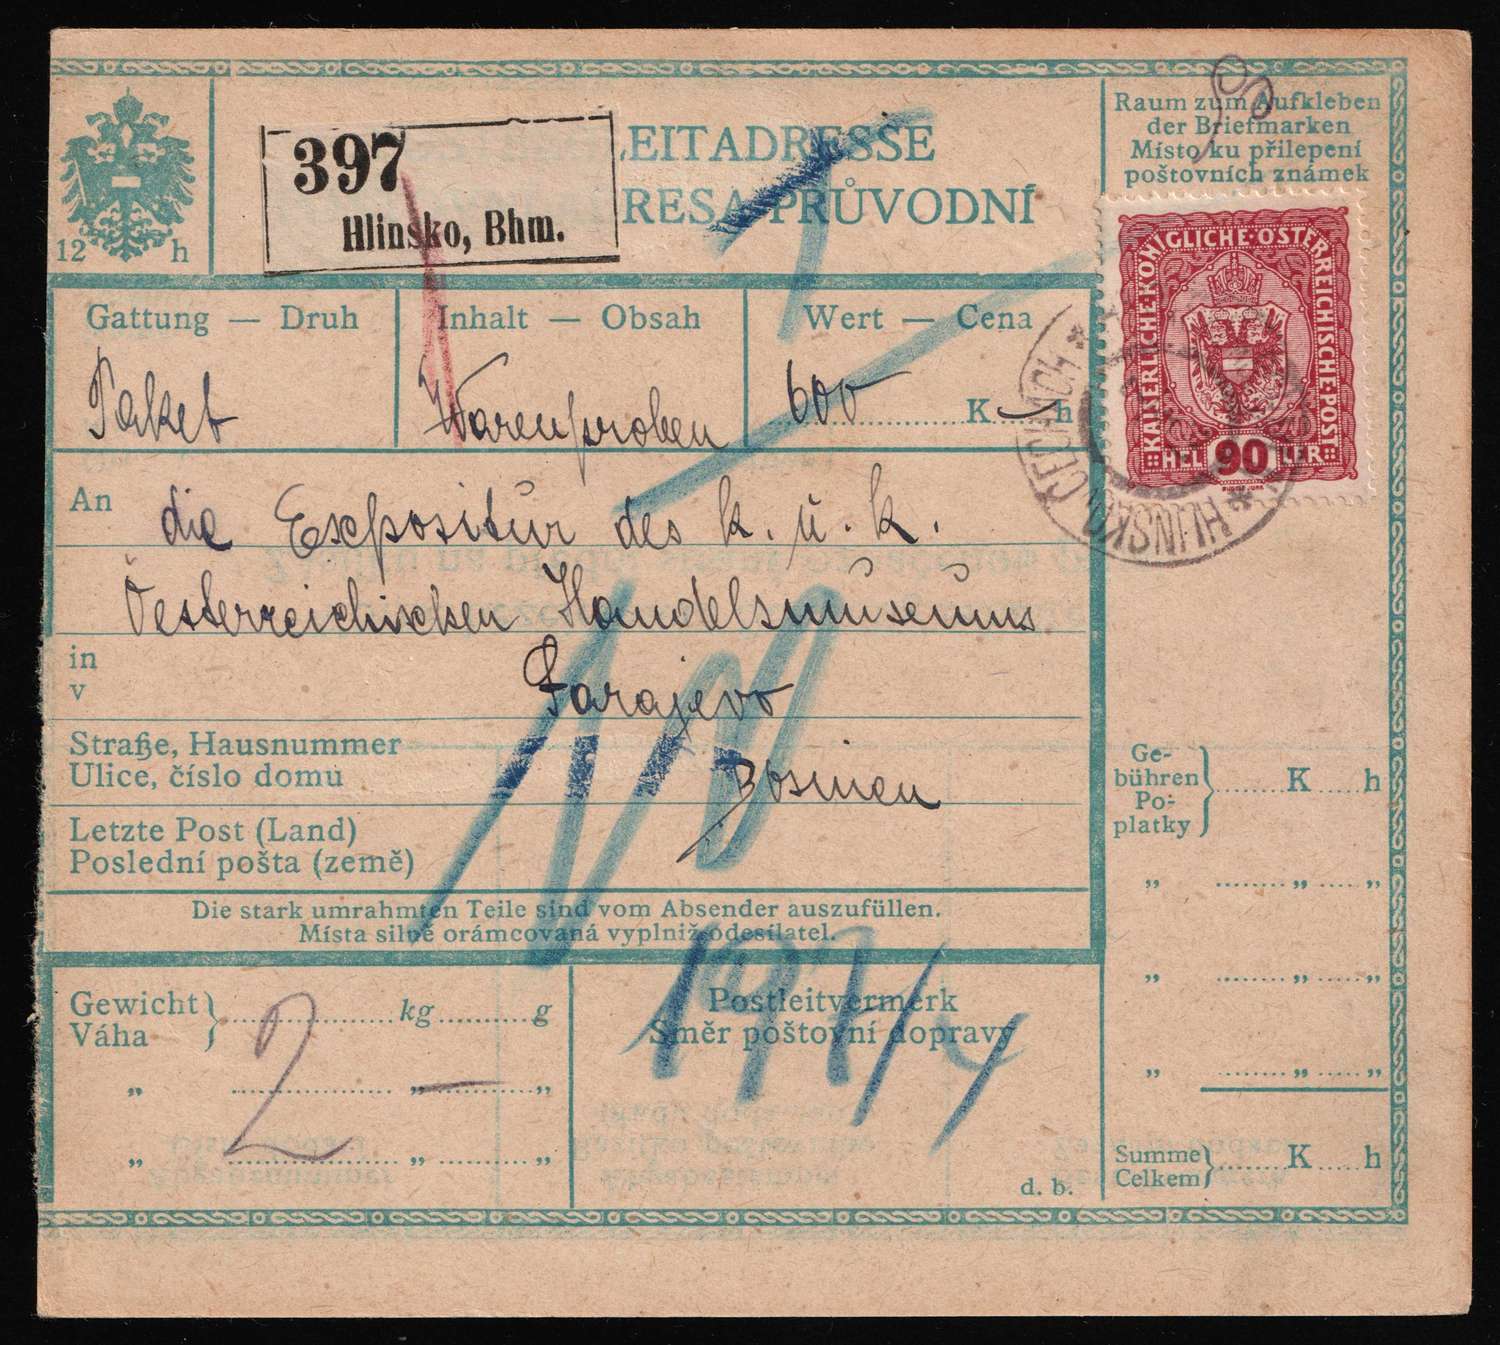 12 h
397
Hlinsko, Bhm.
LEITADRESSE
RESA PRŮVODNÍ
Raum zum Aufkleben
der Briefmarken
Místo ku přilepení
poštovních známek
KAISERLICHE·KÖNIGLICHE·ÖSTERREICHISCHE·POST
HEL 90 LER
HLINSKO
Gattung — Druh
Paket
Inhalt — Obsah
Warenproben
Wert — Cena
600 K — h
An die Expositur des k. u. k.
Oesterreichischen Handelsmuseums
in
v
Sarajevo
Straße, Hausnummer
Ulice, číslo domu
Bosnien
Letzte Post (Land)
Poslední pošta (země)
Die stark umrahmten Teile sind vom Absender auszufüllen.
Místa silně orámcovaná vyplniž odesílatel.
Ge-
bühren
Po-
platky
K h
„ „ „
„ „ „
„ „ „
Summe
Celkem
K h
Gewicht
Váha
kg g
2 —
„ „ „
„ „ „
Postleitvermerk
Směr poštovní dopravy
d. b.